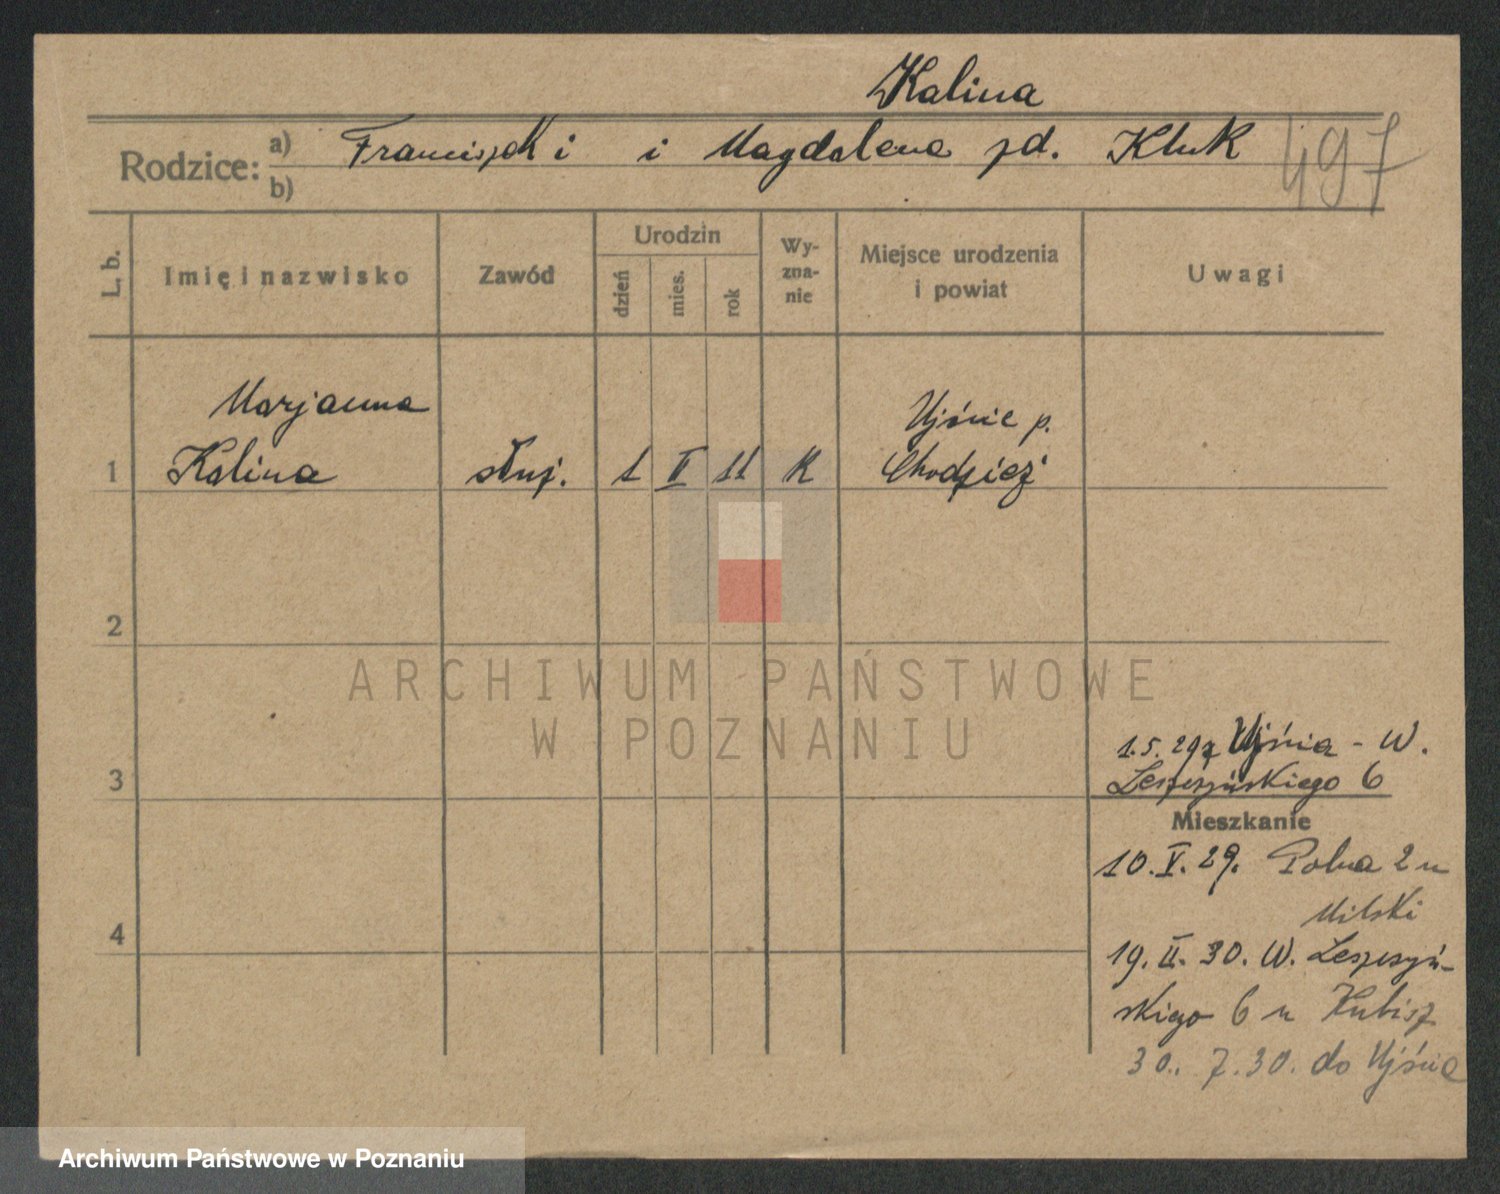 Kalina
Rodzice: a) Franciszek i Magdalena zd. Kluk
b)
497
L. b. Imię i nazwisko Zawód Urodzin dzień mies. rok Wy-zna-nie Miejsce urodzenia i powiat Uwagi
Marjanna
Kalina
1 służ. 1 II 11 K
Ujście p.
Chodzież
2
3
4
1.5.29 z Ujścia - W.
Leszczyńskiego 6
Mieszkanie
10.V.29. Polna 2 u
Milski
19.II.30. W. Leszczyń-
skiego 6 u Kubisz
30.. 7.30. do Ujście
ARCHIWUM PAŃSTWOWE
W POZNANIU
Archiwum Państwowe w Poznaniu